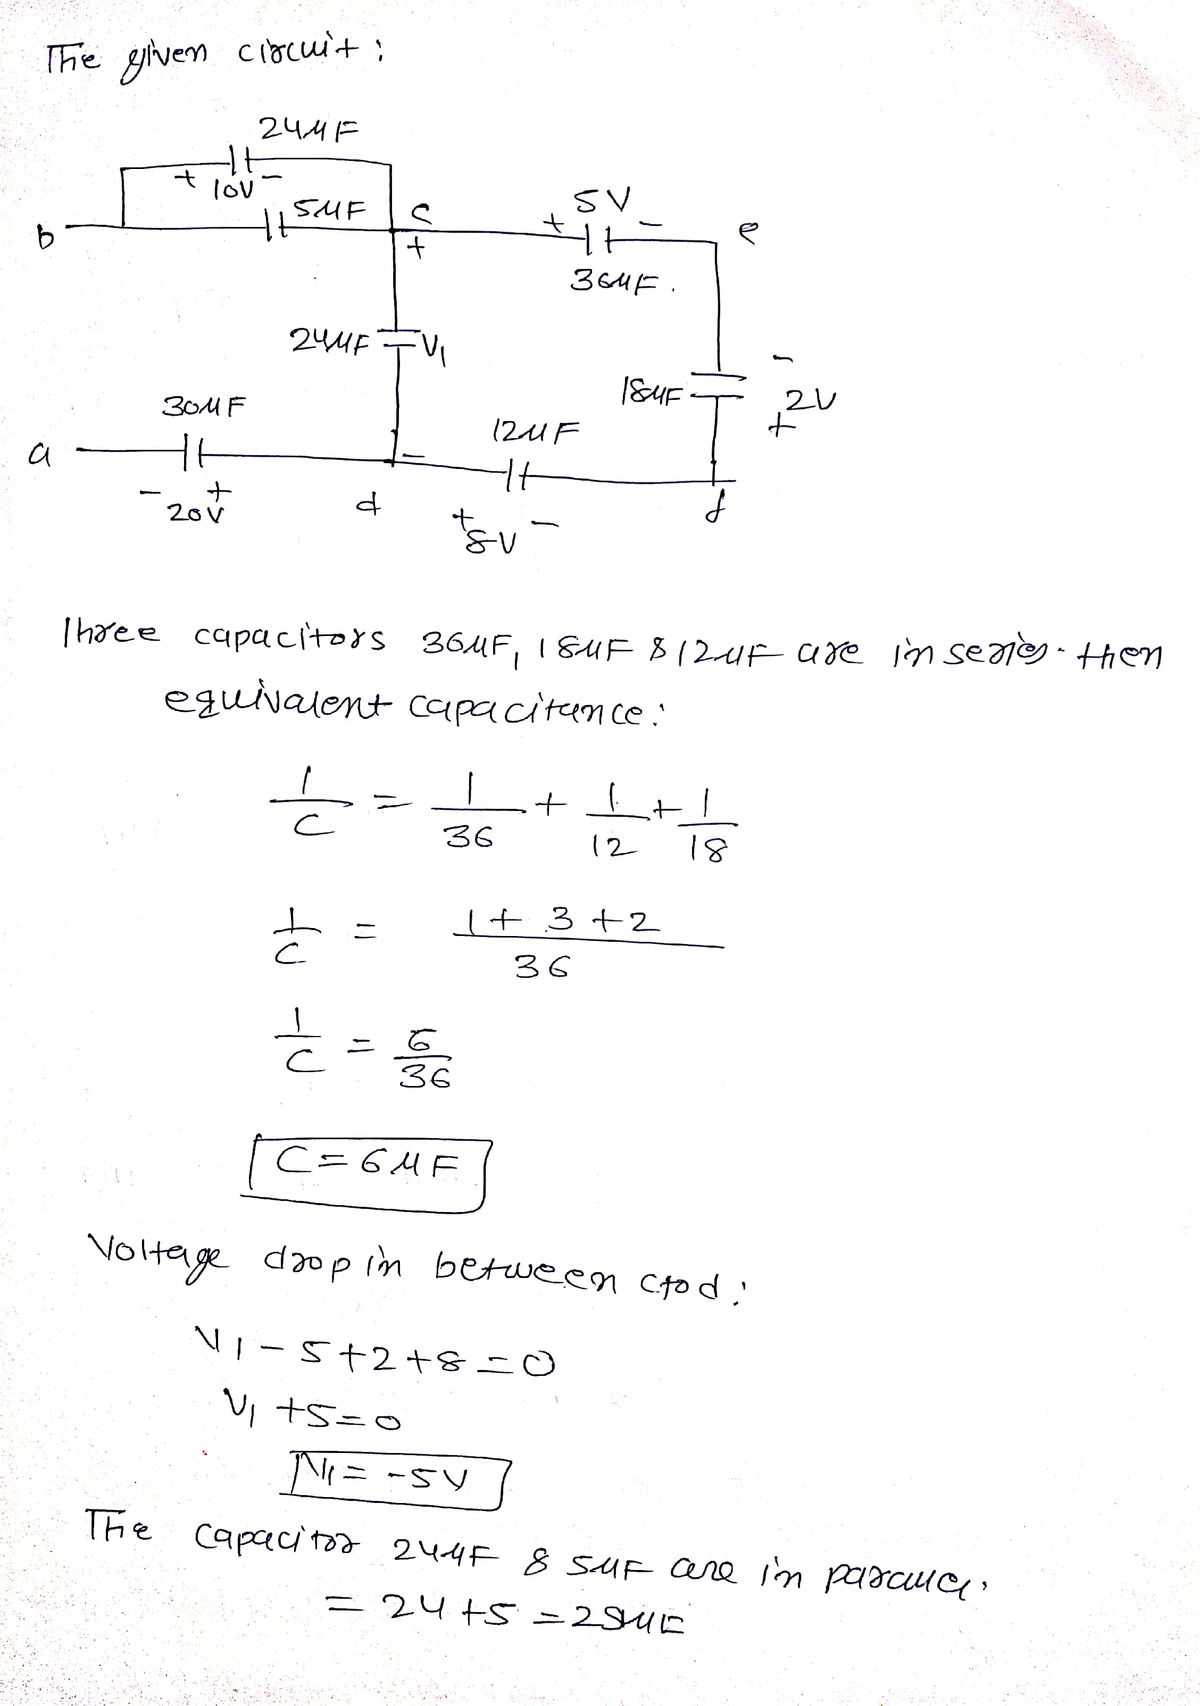 The given circuit:
24μF
+ 10V -
b
5μF
c
+
5V
+ -
e
36μF.
24μF
V1
18μF
-
2V
+
30μF
12μF
a
- 20V +
d
-
+ 8V -
f
Three capacitors 36μF, 18μF & 12μF are in series. then
equivalent capacitance:
1/C = 1/36 + 1/12 + 1/18
1/C = 1+3+2/36
1/C = 6/36
C=6μF
Voltage drop in between c to d:
V1-5+2+8=0
V1+5=0
V1=-5V
The capacitor 24μF & 5μF are in parallel.
= 24+5 = 29μF